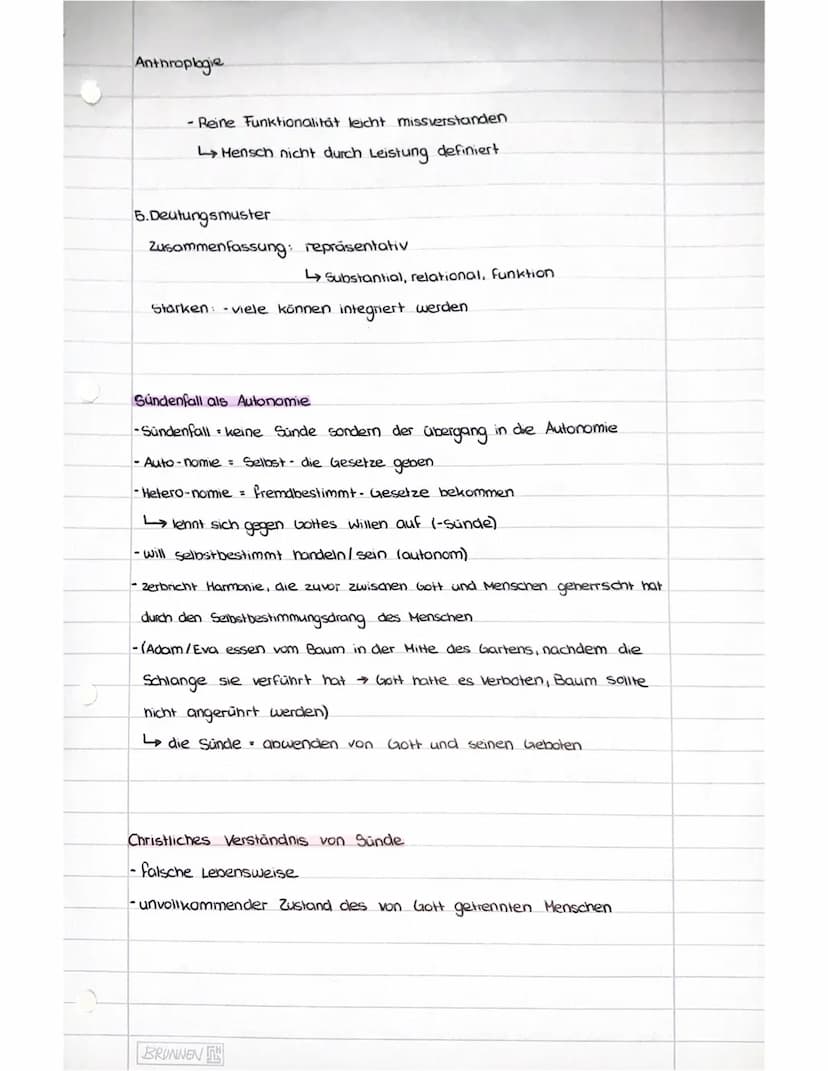 Anthroplogie
- Reine Funktionalität leicht missverstanden
↳ Mensch nicht durch Leistung definiert
5. Deutungsmuster
Zusammenfassung: repräsentativ
↳ Substantial, relational, funktion
Stärken: - viele können integriert werden
Sündenfall als Autonomie
- Sündenfall = keine Sünde sondern der übergang in die Autonomie
- Auto-nomie = Selbst- die Gesetze geben
- Hetero-nomie = fremdbestimmt- Gesetze bekommen
↳ lehnt sich gegen Gottes Willen auf (-Sünde)
- will selbstbestimmt handeln/ sein (autonom)
- zerbricht Harmonie, die zuvor zwischen Gott und Menschen geherrscht hat
durch den Selbstbestimmungsdrang des Menschen
- (Adam/Eva essen vom Baum in der Mitte des Gartens, nachdem die
Schlange sie verführt hat → Gott hatte es verboten, Baum sollte
nicht angerührt werden)
↳ die Sünde = abwenden von Gott und seinen Geboten
Christliches Verständnis von Sünde
- falsche Lebensweise
- unvollkommender Zustand des von Gott getrennten Menschen
BRUNNEN